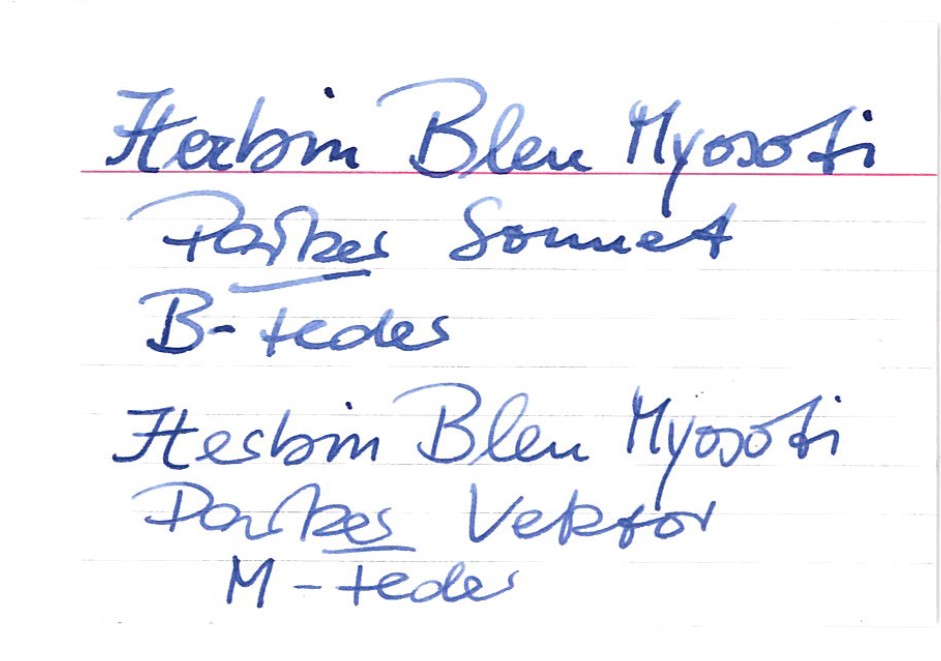 Herbin Bleu Myosoti
Parker Sonnet
B-Feder
Herbin Bleu Myosoti
Parker Vektor
M-Feder